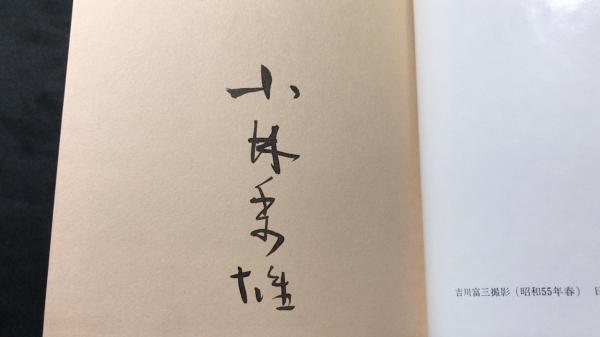 小林秀雄
吉川富三撮影（昭和55年春）